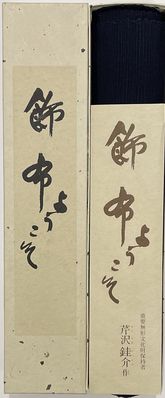 飾布ようこそ
飾布ようこそ
重要無形文化財保持者
芹沢銈介作